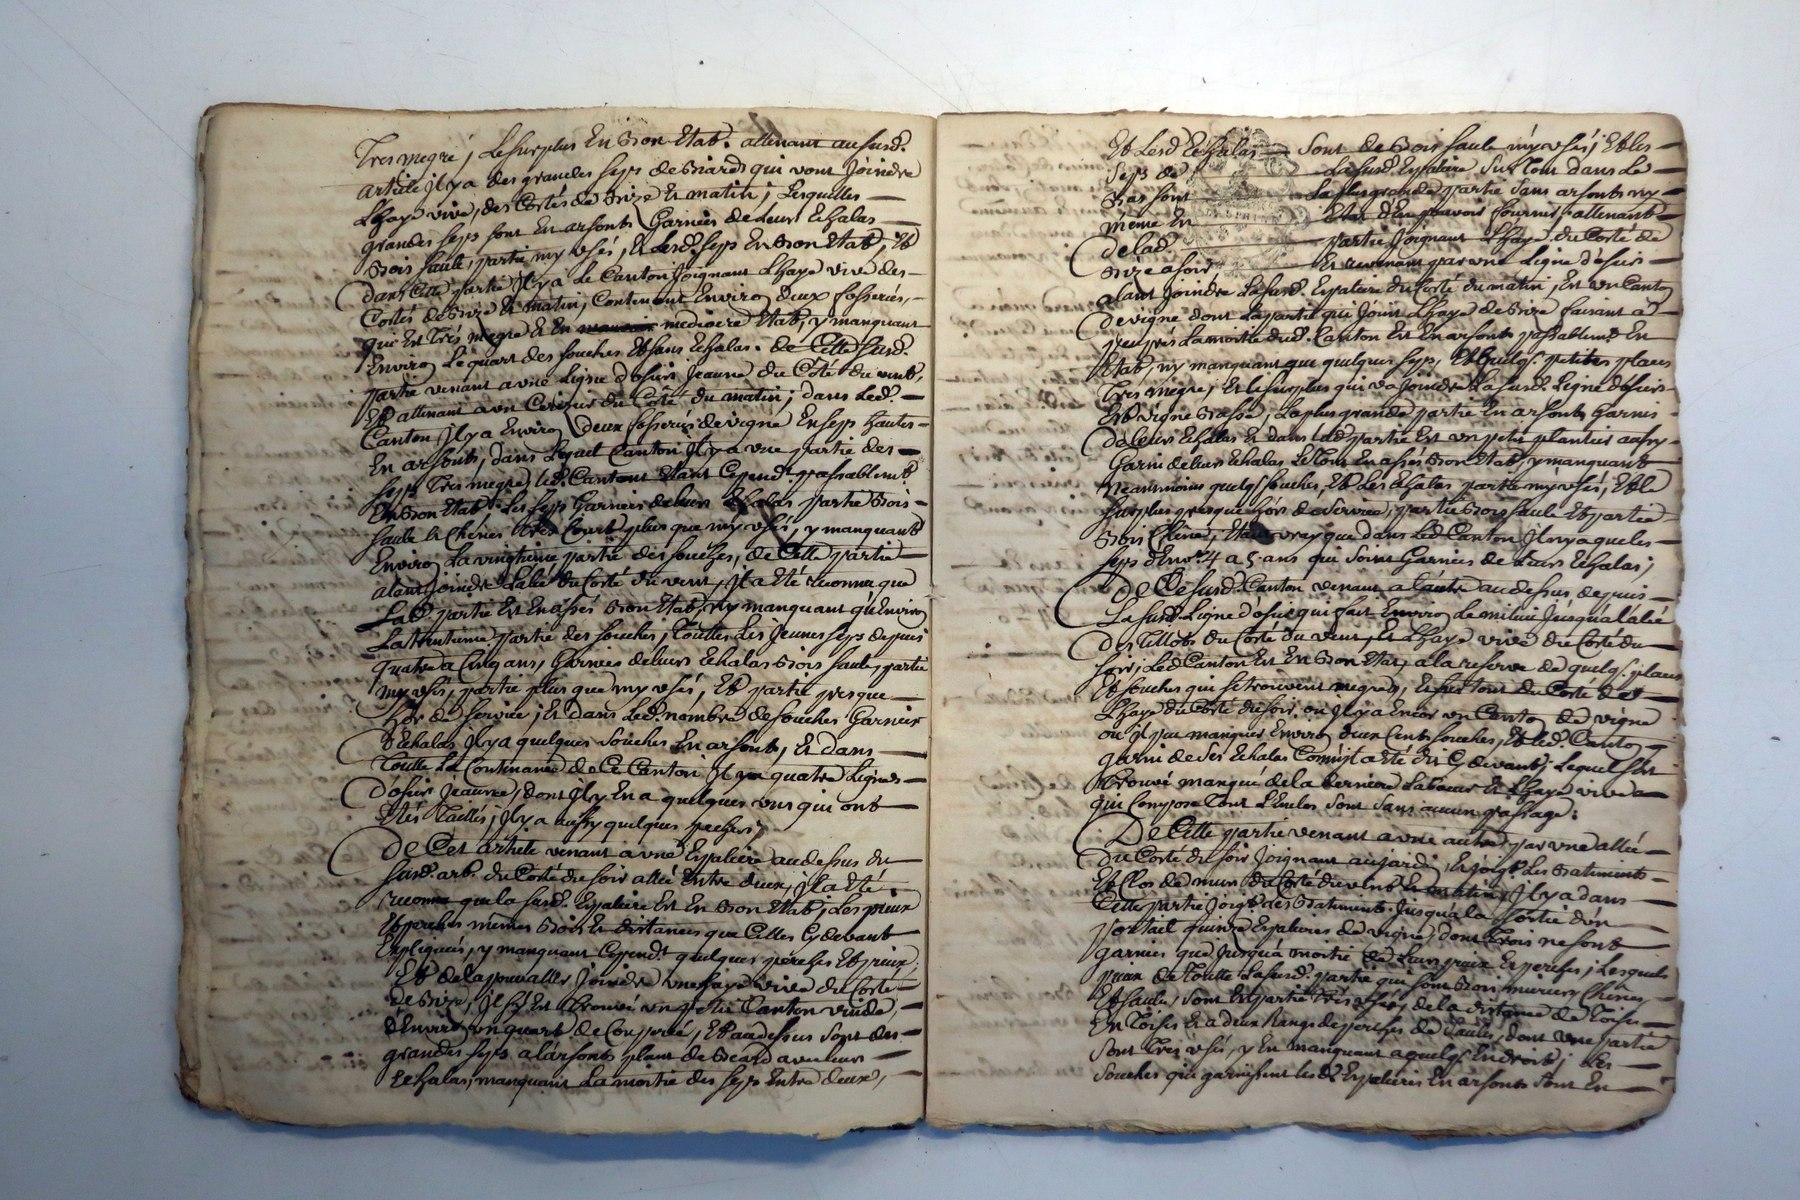 Tres megre, Le surplus En Bon Etat. attenant au susd.
article Il y a des grandes seps de Biard qui vont Joindre
L'haye vive, des Cortés de Bize Et matin, Lesquelles
grandes seps sont En arsonts Garnies de Leurs Echalas
Bois saule, partie my usés, Et Lesd. seps En Bon Etat, Et
dans Cette partie Il y a Le Canton Joignant L'haye vive des
Cortés de Bize Et matin, Contenant Environ deux fosserées,
qui Est Trés megre Et En mediocre Etat, y manquant
Environ Le quart des souches Et sans Echalas. de Cette susd.
partie venant a une Ligne d'osier Jeaune du Coté du vent,
Et attenant a un Cerisier du Coté du matin, dans Led.
Canton, Il y a Environ deux fosserées de vigne En seps hautes
En arsonts, dans Lequel Canton Il y a une partie des
seps Tres megres, led. Canton Etant Cepend. passablemt.
En Bon Etat. Les seps Garnies de leurs Echalas partie Bois
saule Et Chénes Tres Courts plus que my usés, y manquant
Environ La vingtieme partie des souches, de Cette partie
alant Joindre L'alée du Corté du vent, Il a Eté reconnu que
Lad. partie Est En assés Bon Etat, ny manquant qu'Environ
La Trentieme partie des souches, Touttes Les Jeunes seps depuis
quatre a Cinq ans, Garnies de leurs Echalas Bois saule, partie
my usés, partie plus que my usés, Et partie presque
hór de service, Et dans Led. nombre de souches Garnies
d'Echalas Il y a quelques souches En arsonts, Et dans
Toutte La Continance de Ce Canton Il y a quatre Lignes
d'osier Jeaune, dont Il y En a quelques uns qui ont
Etés Taillés, Il y a aussy quelques pechers,
De Cet article venant a une Espaliere au dessus du
susd. arb. du Corté du soir allée Entre deux, Il a Eté
reconnu que la susd. Espaliere Est En Bon Etat, Les preux
Et perches mémes Bois Et distances que Celles Cy devant
Expliqués, y manquant Cepend. quelques perches Et preux,
Et de la pour aller Joindre une haye vive du Corté
de Bize, Il s'y Est Trouvé un petit Canton vuide,
d'Environ un quart de Coupée, Et au dessus sont des
grandes seps a l'arsonts plant de Beard avec leurs
Echalas, manquant La moitié des seps Entre deux,
Et Lesd. Echalas sont de Bois saule my usés, Et les
seps de La susd. Espaliere surtout dans Le
Bas sont La plus grande partie sans arsonts ny
méme En Etat d'En pouvoir fournir, attenant
de lad. partie Joignant L'haye du Corté de
Bize a soir, Et revenant par une Ligne d'osier
alant Joindre La susd. Espaliere du Corté du matin, Est un Canton
de vigne dont La partie qui Joint L'haye de Bize faisant à
peu prés La moitié dud. Canton Est En arsonts passablemt. En
Etat, ny manquant que quelques seps, Et quelqs. petites places
Tres megre, Et le surplus qui va Joindre La susd. Ligne d'osier
Est vigne Basse, La plus grande partie En arsonts Garnis
de leurs Echalas Et dans lad. partie Est un petit plantier aussy
Garni de leurs Echalas Le Tout En assés Bon Etat, y manquant
Neanmoins quelqs. souches, Et Les Echalas partie my usés, Et Le
surplus presque hór de service, partie Bois saule Et partie
Bois Chéne, Etant vray que dans Led. Canton Il n'y a que les
seps d'Envn. 4 a 5 ans qui soient Garnies de Leurs Echalas,
De Ce susd. Canton venant a l'autre au dessus depuis
La susd. Ligne d'osier qui fait Environ Le milieu Jusqu'a l'alée
des Tillots du Corté du vent, Et L'haye vive du Corté du
soir, Led. Canton Est En Bon Etat, a la reserve de quelqs. places
Et souches qui se trouvent megres, Et surtout du Corté de
L'haye du Corté du soir, ou Il y a Encor un Canton de vigne
ou Il peut manquer Environ deux Cents souches, Et led. Canton
garni de ses Echalas Comm'Il a eté dit Cy devant, Lequel s'est
Trouvé manqué de la derniere Labour Et L'haye vive
qui Compose Tout L'Enclos sont sans aucun passage.
De Cette partie venant a une autre par une allée
du Corté du soir Joignant au jardin, Et joigt. Les Batiments
Et Clos de murs du Corté du vent Il y a dans
Cette partie Joigt. des Batiments, Jusqu'a la sortie d'un
portail quinze Espalieres de vigne, dont Trois ne sont
garnies que Jusqu'a moitié de Leurs preux Et perches, Lesquels
preux de Toutte La susd. partie qui sont Bois Chênes
Et saule, sont En partie Trés usés, de la distance de Toise
En Toise Et a deux Rangs de perches de saule, dont une partie
sont Tres usés, y En manquant a quelqs. Endroits, Les
souches qui garnissent lesd. Espalieres En arsonts sont En